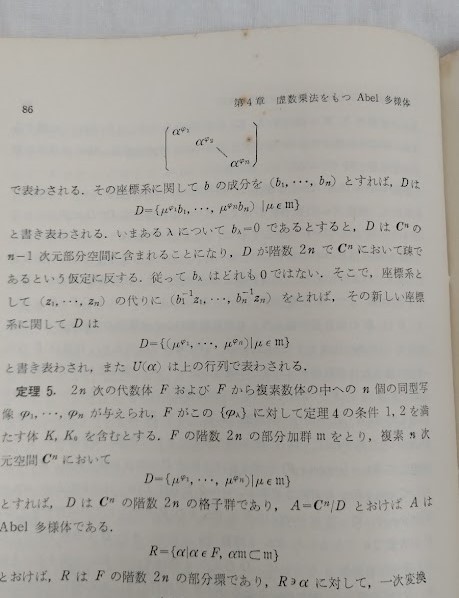 86
第4章 虚数乗法をもつ Abel 多様体
α^φ₁
α^φ₂
α^φₙ
で表わされる. その座標系に関して b の成分を (b₁, ···, bₙ) とすれば, D は
D={μ^φ₁b₁, ···, μ^φₙbₙ) |μ ϵ m}
と書き表わされる. いまある λ について b_λ=0 であるとすると, D は Cⁿ の
n−1 次元部分空間に含まれることになり, D が階数 2n で Cⁿ において疎で
あるという仮定に反する. 従って b_λ はどれも 0 ではない. そこで, 座標系と
して (z₁, ···, zₙ) の代りに (b₁⁻¹z₁, ···, bₙ⁻¹zₙ) をとれば, その新しい座標
系に関して D は
D={(μ^φ₁, ···, μ^φₙ)|μ ϵ m}
と書き表わされ, また U(α) は上の行列で表わされる.
定理 5. 2n 次の代数体 F および F から複素数体の中への n 個の同型写
像 φ₁, ···, φₙ が与えられ, F がこの {φ_λ} に対して定理4の条件 1, 2 を満
たす体 K, K₀ を含むとする. F の階数 2n の部分加群 m をとり, 複素 n 次
元空間 Cⁿ において
D={μ^φ₁, ···, μ^φₙ)|μ ϵ m}
とすれば, D は Cⁿ の階数 2n の格子群であり, A=Cⁿ/D とおけば A は
Abel 多様体である.
R={α|α ϵ F, αm⊂m}
とおけば, R は F の階数 2n の部分環であり, R∍α に対して, 一次変換